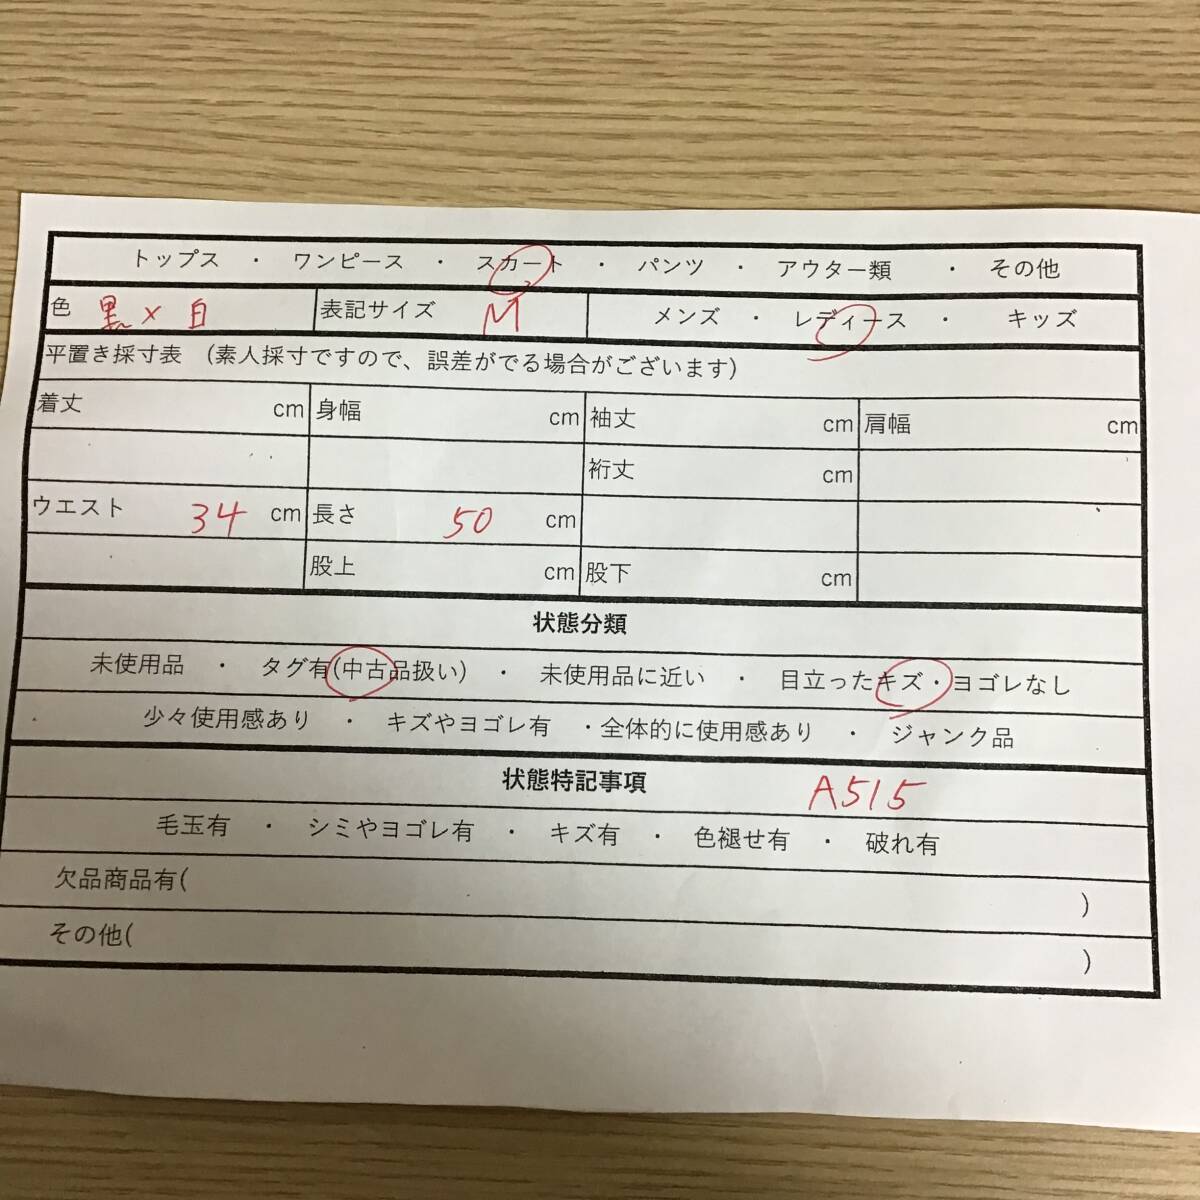 トップス ・ ワンピース ・ スカート ・ パンツ ・ アウター類 ・ その他
色 黒×白 表記サイズ M メンズ ・ レディース ・ キッズ
平置き採寸表 (素人採寸ですので、誤差がでる場合がございます)
着丈 cm 身幅 cm 袖丈 cm 肩幅 cm
裄丈 cm
ウエスト 34 cm 長さ 50 cm
股上 cm 股下 cm
状態分類
未使用品 ・ タグ有(中古品扱い) ・ 未使用品に近い ・ 目立ったキズ・ヨゴレなし
少々使用感あり ・ キズやヨゴレ有 ・全体的に使用感あり ・ ジャンク品
状態特記事項 A515
毛玉有 ・ シミやヨゴレ有 ・ キズ有 ・ 色褪せ有 ・ 破れ有
欠品商品有( )
その他( )